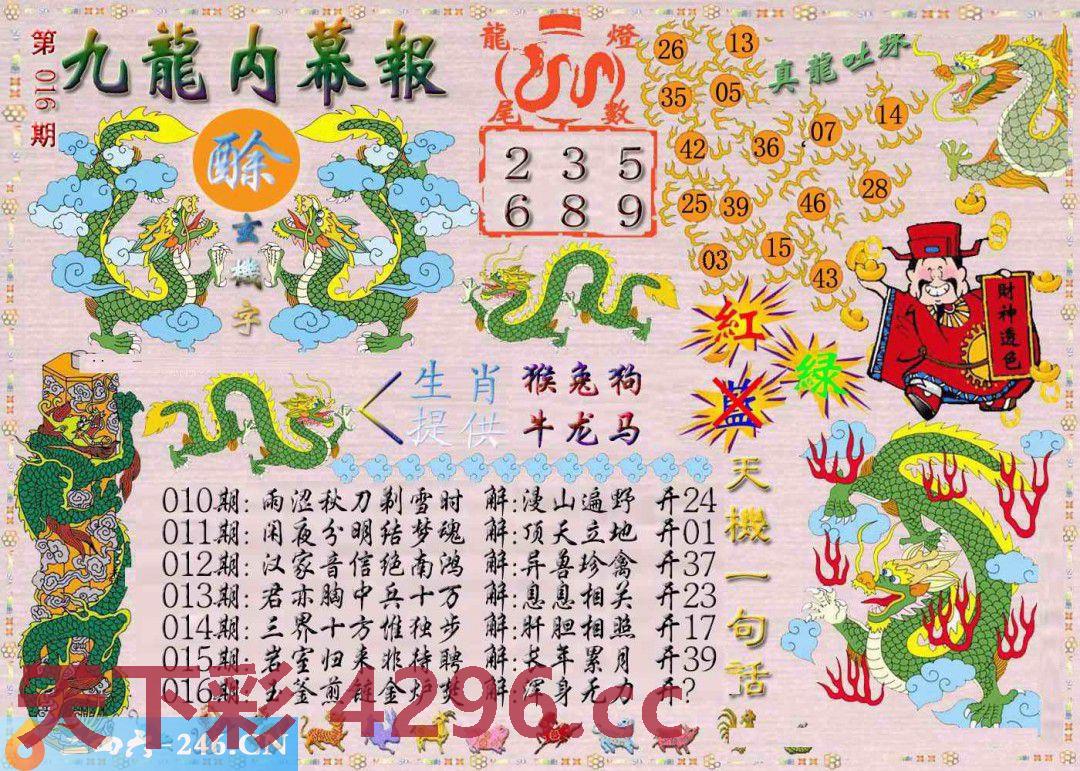 第016期
九龍内幕報
酴
玄機字
龍尾
燈數
2 3 5
6 8 9
真龍吐珠
26 13
35 05
42 36 07 14
25 39 46 28
03 15 43
財神透色
紅
绿
蓝
生肖 猴兔狗
提供 牛龙马
天機一句話
010期: 雨涩秋刀剃雪时 解:浸山遍野 开24
011期: 闲夜分明结梦魂 解:顶天立地 开01
012期: 汉家音信绝南鸿 解:异兽珍禽 开37
013期: 君亦胸中兵十万 解:息息相关 开23
014期: 三界十方惟独步 解:肝胆相照 开17
015期: 岩室归来非待聘 解:长年累月 开39
016期: 玉釜煎 金炉 解:浑身无力 开?
天下彩 4296.cc
246.CN